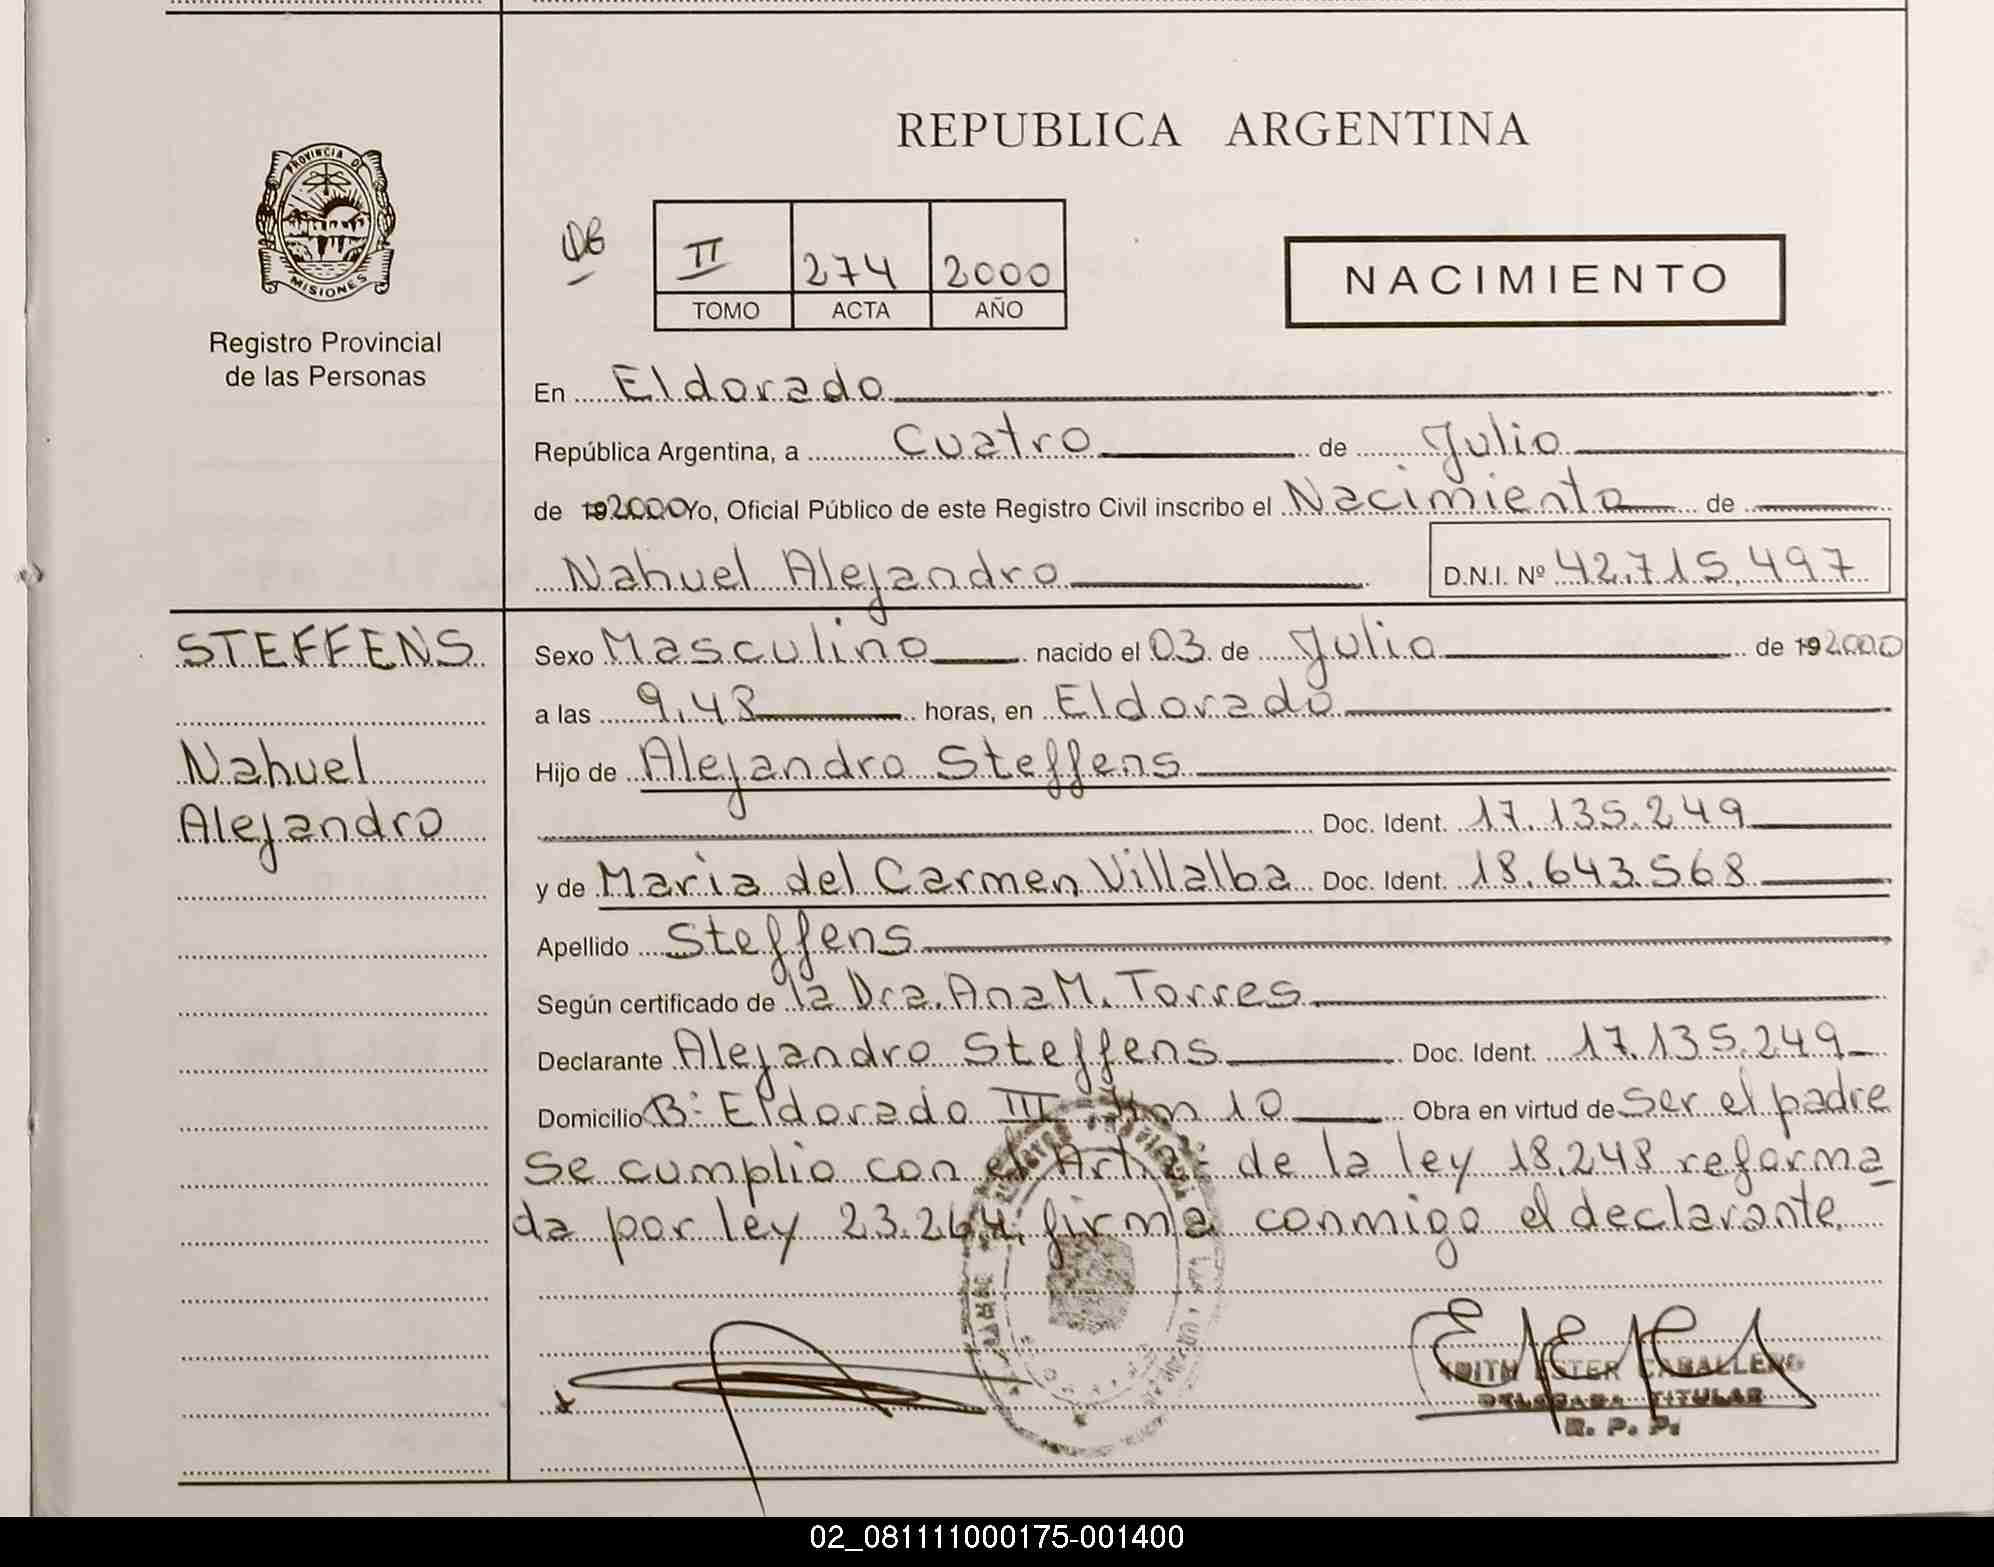 REPUBLICA ARGENTINA
PROVINCIA DE
MISIONES
Registro Provincial
de las Personas
II 274 2000
TOMO ACTA AÑO
NACIMIENTO
En Eldorado
República Argentina, a Cuatro de Julio
de 192000 Yo, Oficial Público de este Registro Civil inscribo el Nacimiento de
Nahuel Alejandro D.N.I. Nº 42.715.497
STEFFENS
Nahuel
Alejandro
Sexo Masculino nacido el 03 de Julio de 192000
a las 9,48 horas, en Eldorado
Hijo de Alejandro Steffens
Doc. Ident. 17.135.249
y de Maria del Carmen Villalba Doc. Ident. 18.643.568
Apellido Steffens
Según certificado de la Dra. Ana M. Torres
Declarante Alejandro Steffens Doc. Ident. 17.135.249
Domicilio Bº Eldorado III Km 10 Obra en virtud de Ser el padre
Se cumplio con el Art. 2º de la ley 18.248 reforma
da por ley 23.264, firma conmigo el declarante.
EDITH ESTER CABALLERO
DELEGADA TITULAR
R. P. P.
02_081111000175-001400